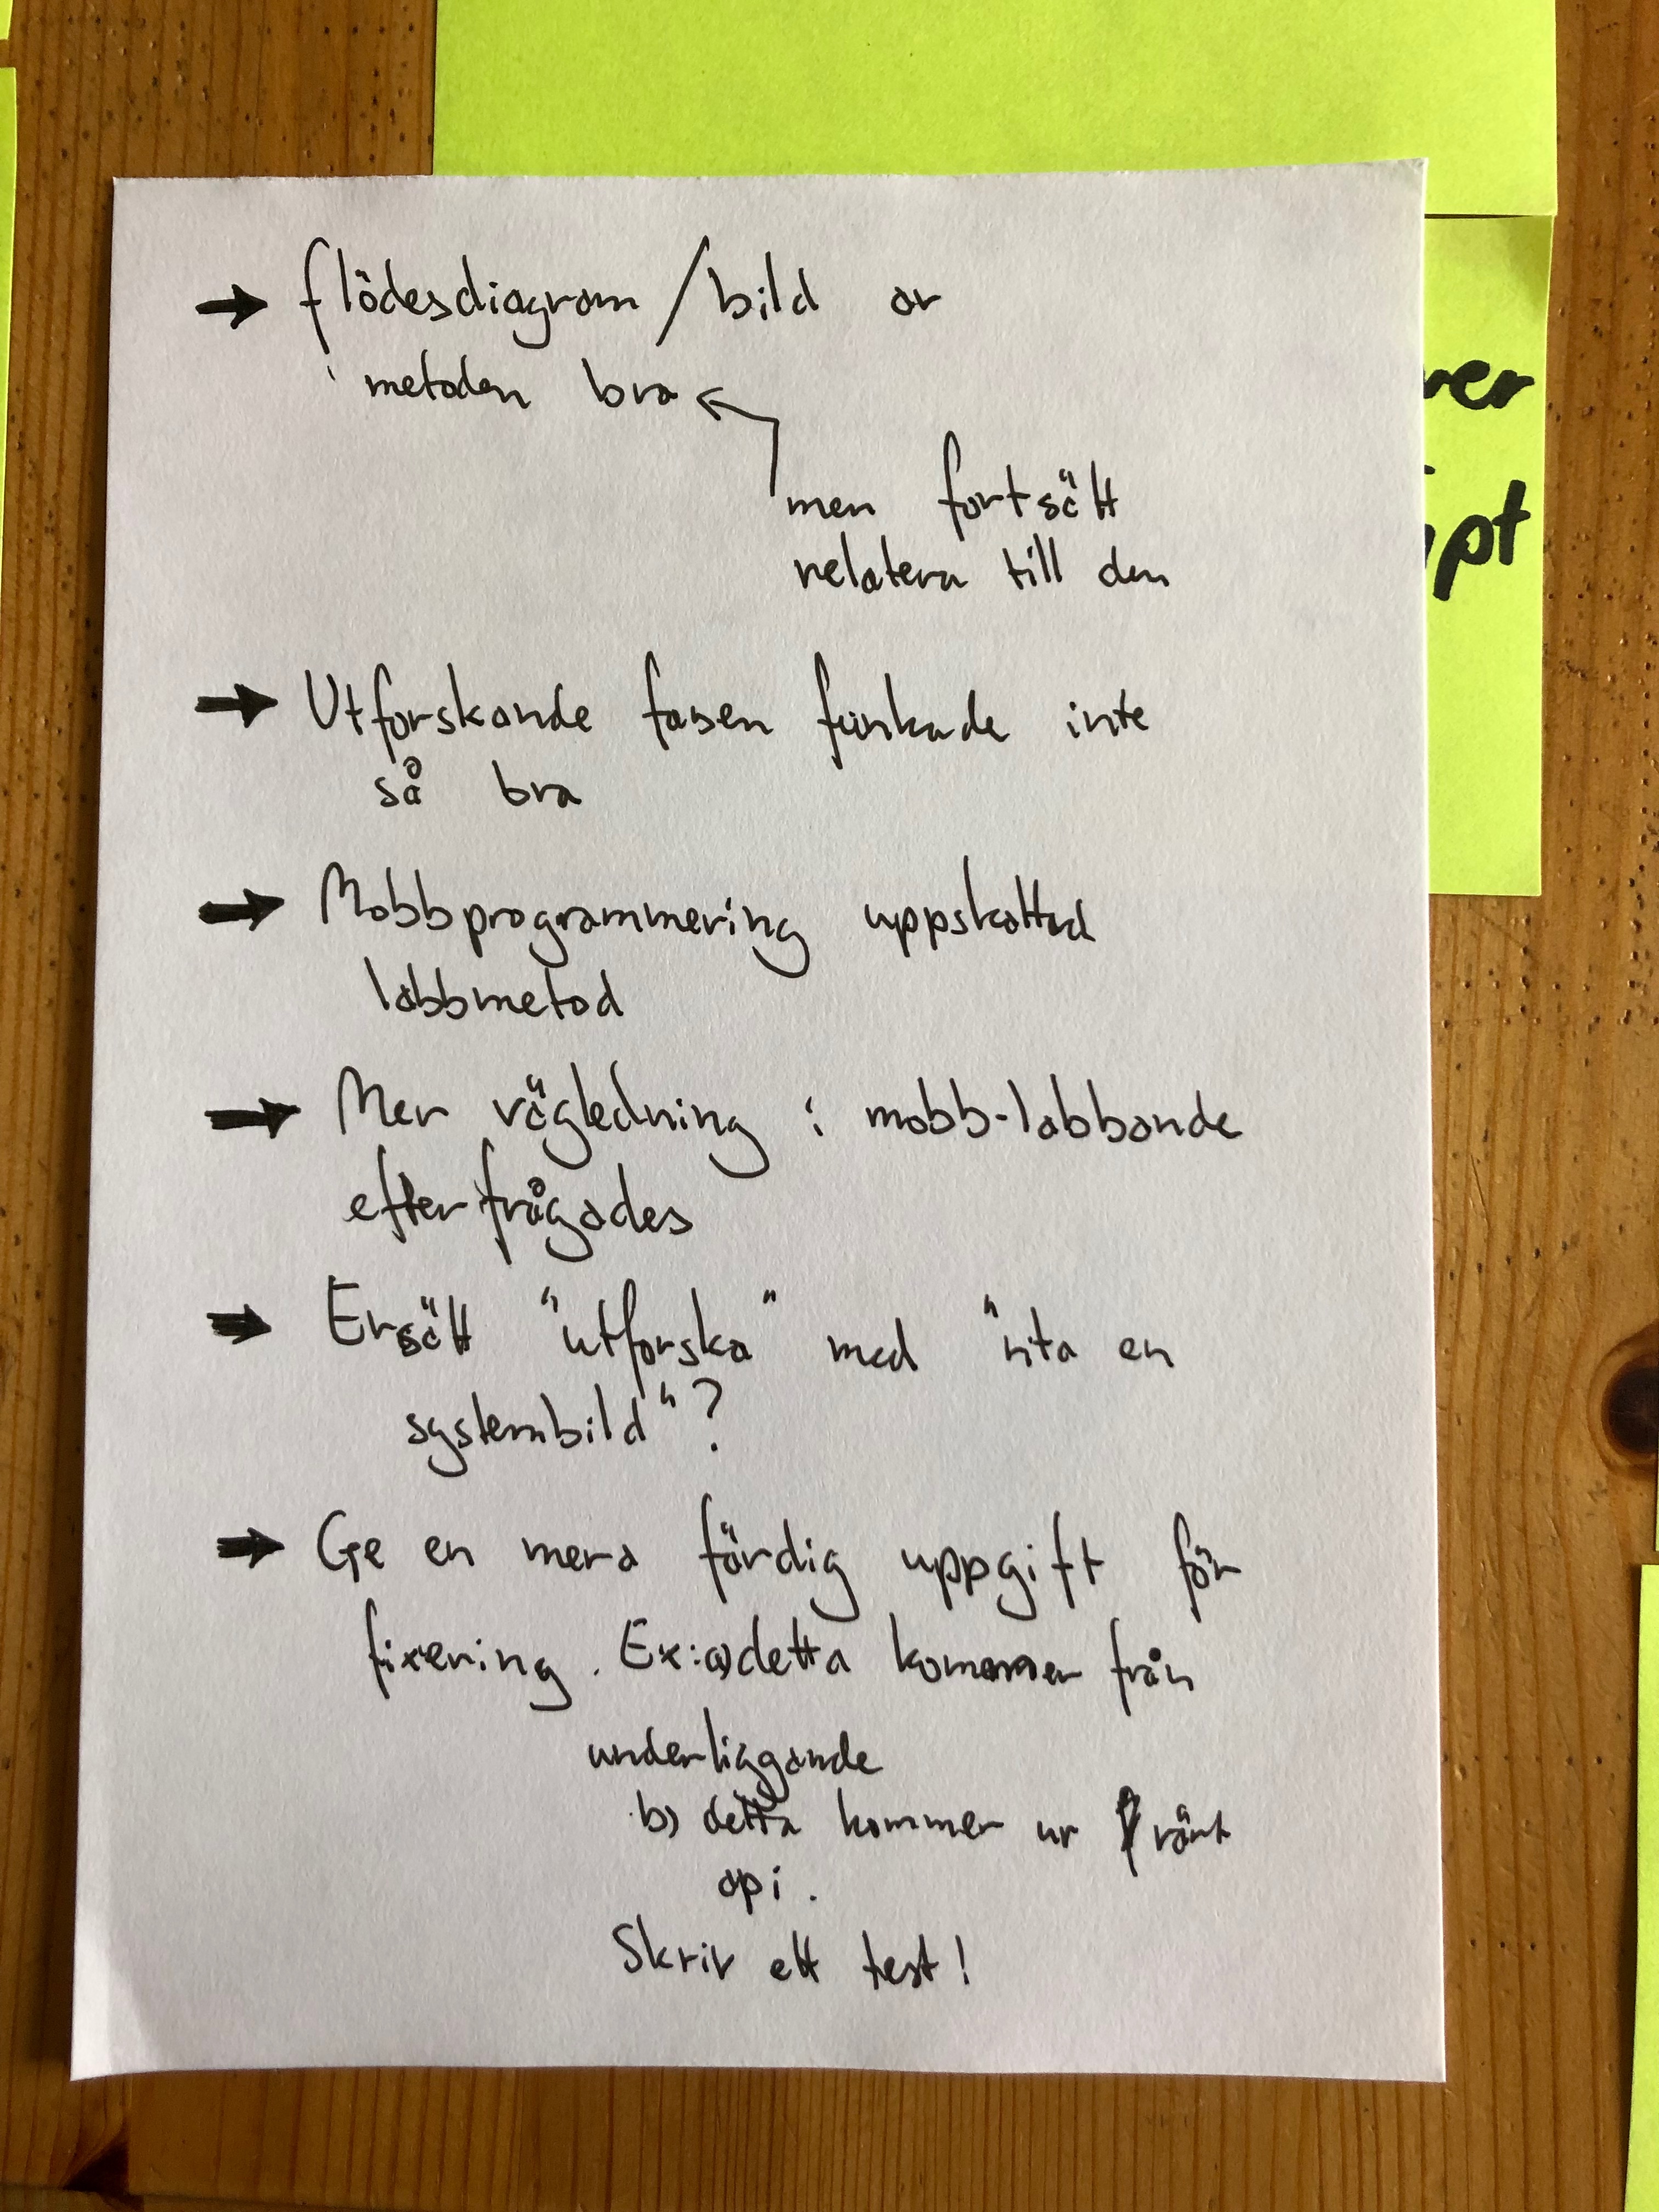 → flödesdiagram / bild av
metoden bra ←
men fortsätt
relatera till den
→ Utforskande fasen funkade inte
så bra
→ Mobbprogrammering uppskattad
labbmetod
→ Mer vägledning i mobb-labbande
efterfrågades
→ Ersätt "utforska" med "rita en
systembild"?
→ Ge en mera färdig uppgift för
fixering. Ex: a) detta kommer från
underliggande
b) detta kommer ur vårt
api.
Skriv ett test!
ver
pt